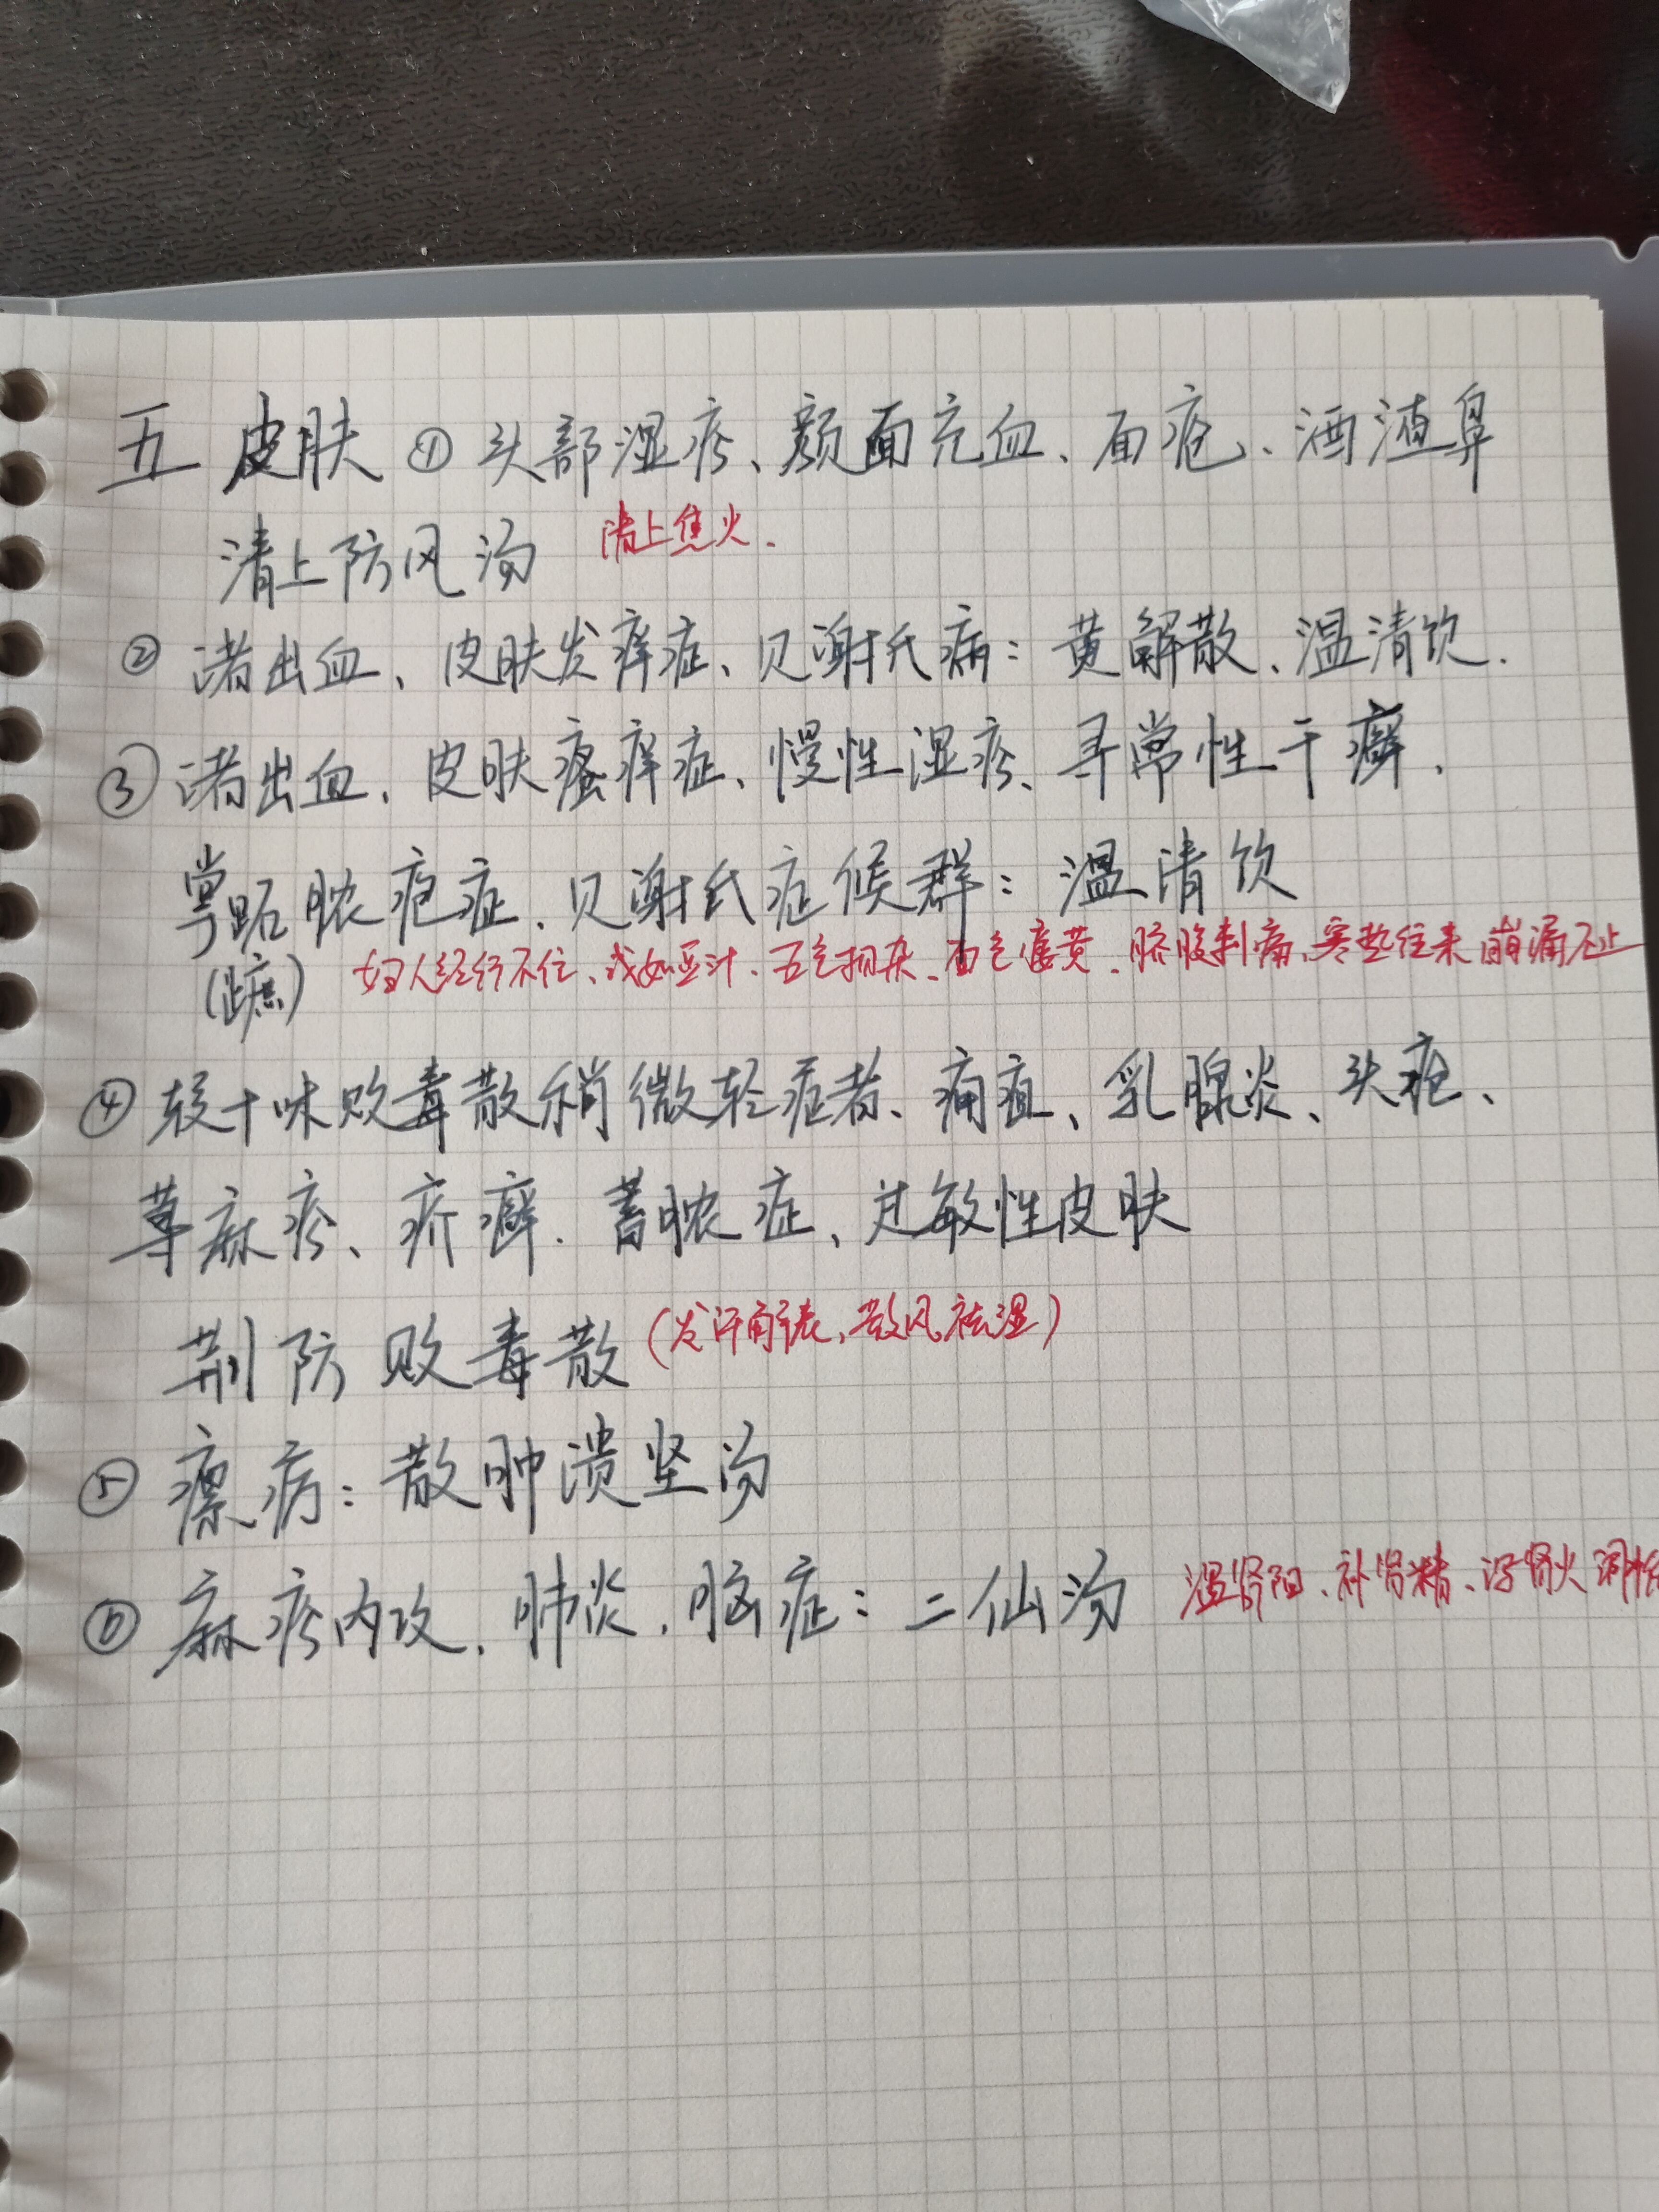 五 皮肤 ① 头部湿疹、颜面充血、面疮、酒渣鼻
清上防风汤 清上焦火.
② 诸出血、皮肤发痒症、贝谢氏病：黄解散、温清饮.
③ 诸出血、皮肤瘙痒症、慢性湿疹、寻常性干癣、
掌跖脓疱症、贝谢氏症候群：温清饮
(蹠) 妇人经行不住、或如豆汁、五色相杂、面色痿黄、脐腹刺痛、寒热往来 崩漏不止
④ 较十味败毒散稍微轻症者、痈疽、乳腺炎、头疮、
荨麻疹、疥癣、蓄脓症、过敏性皮肤
荆防败毒散 (发汗解表、散风祛湿)
⑤ 瘰疬：散肿溃坚汤
⑥ 麻疹内攻、肺炎、脑症：二仙汤 温肾阳、补肾精、泻肾火 调